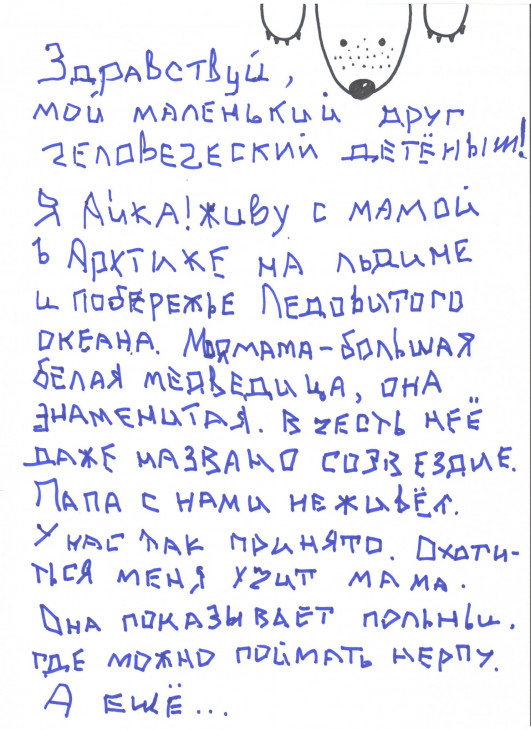 Здравствуй,
мой маленький друг
человеческий детёныш!
Я Айка! живу с мамой
в Арктике на льдине
и побережье Ледовитого
океана. Моя мама - большая
белая медведица, она
знаменитая. В честь неё
даже названо созвездие.
Папа с нами не живёт.
У нас так принято. Охоти-
ться меня учит мама.
Она показывает полыньи,
где можно поймать нерпу.
А ещё...